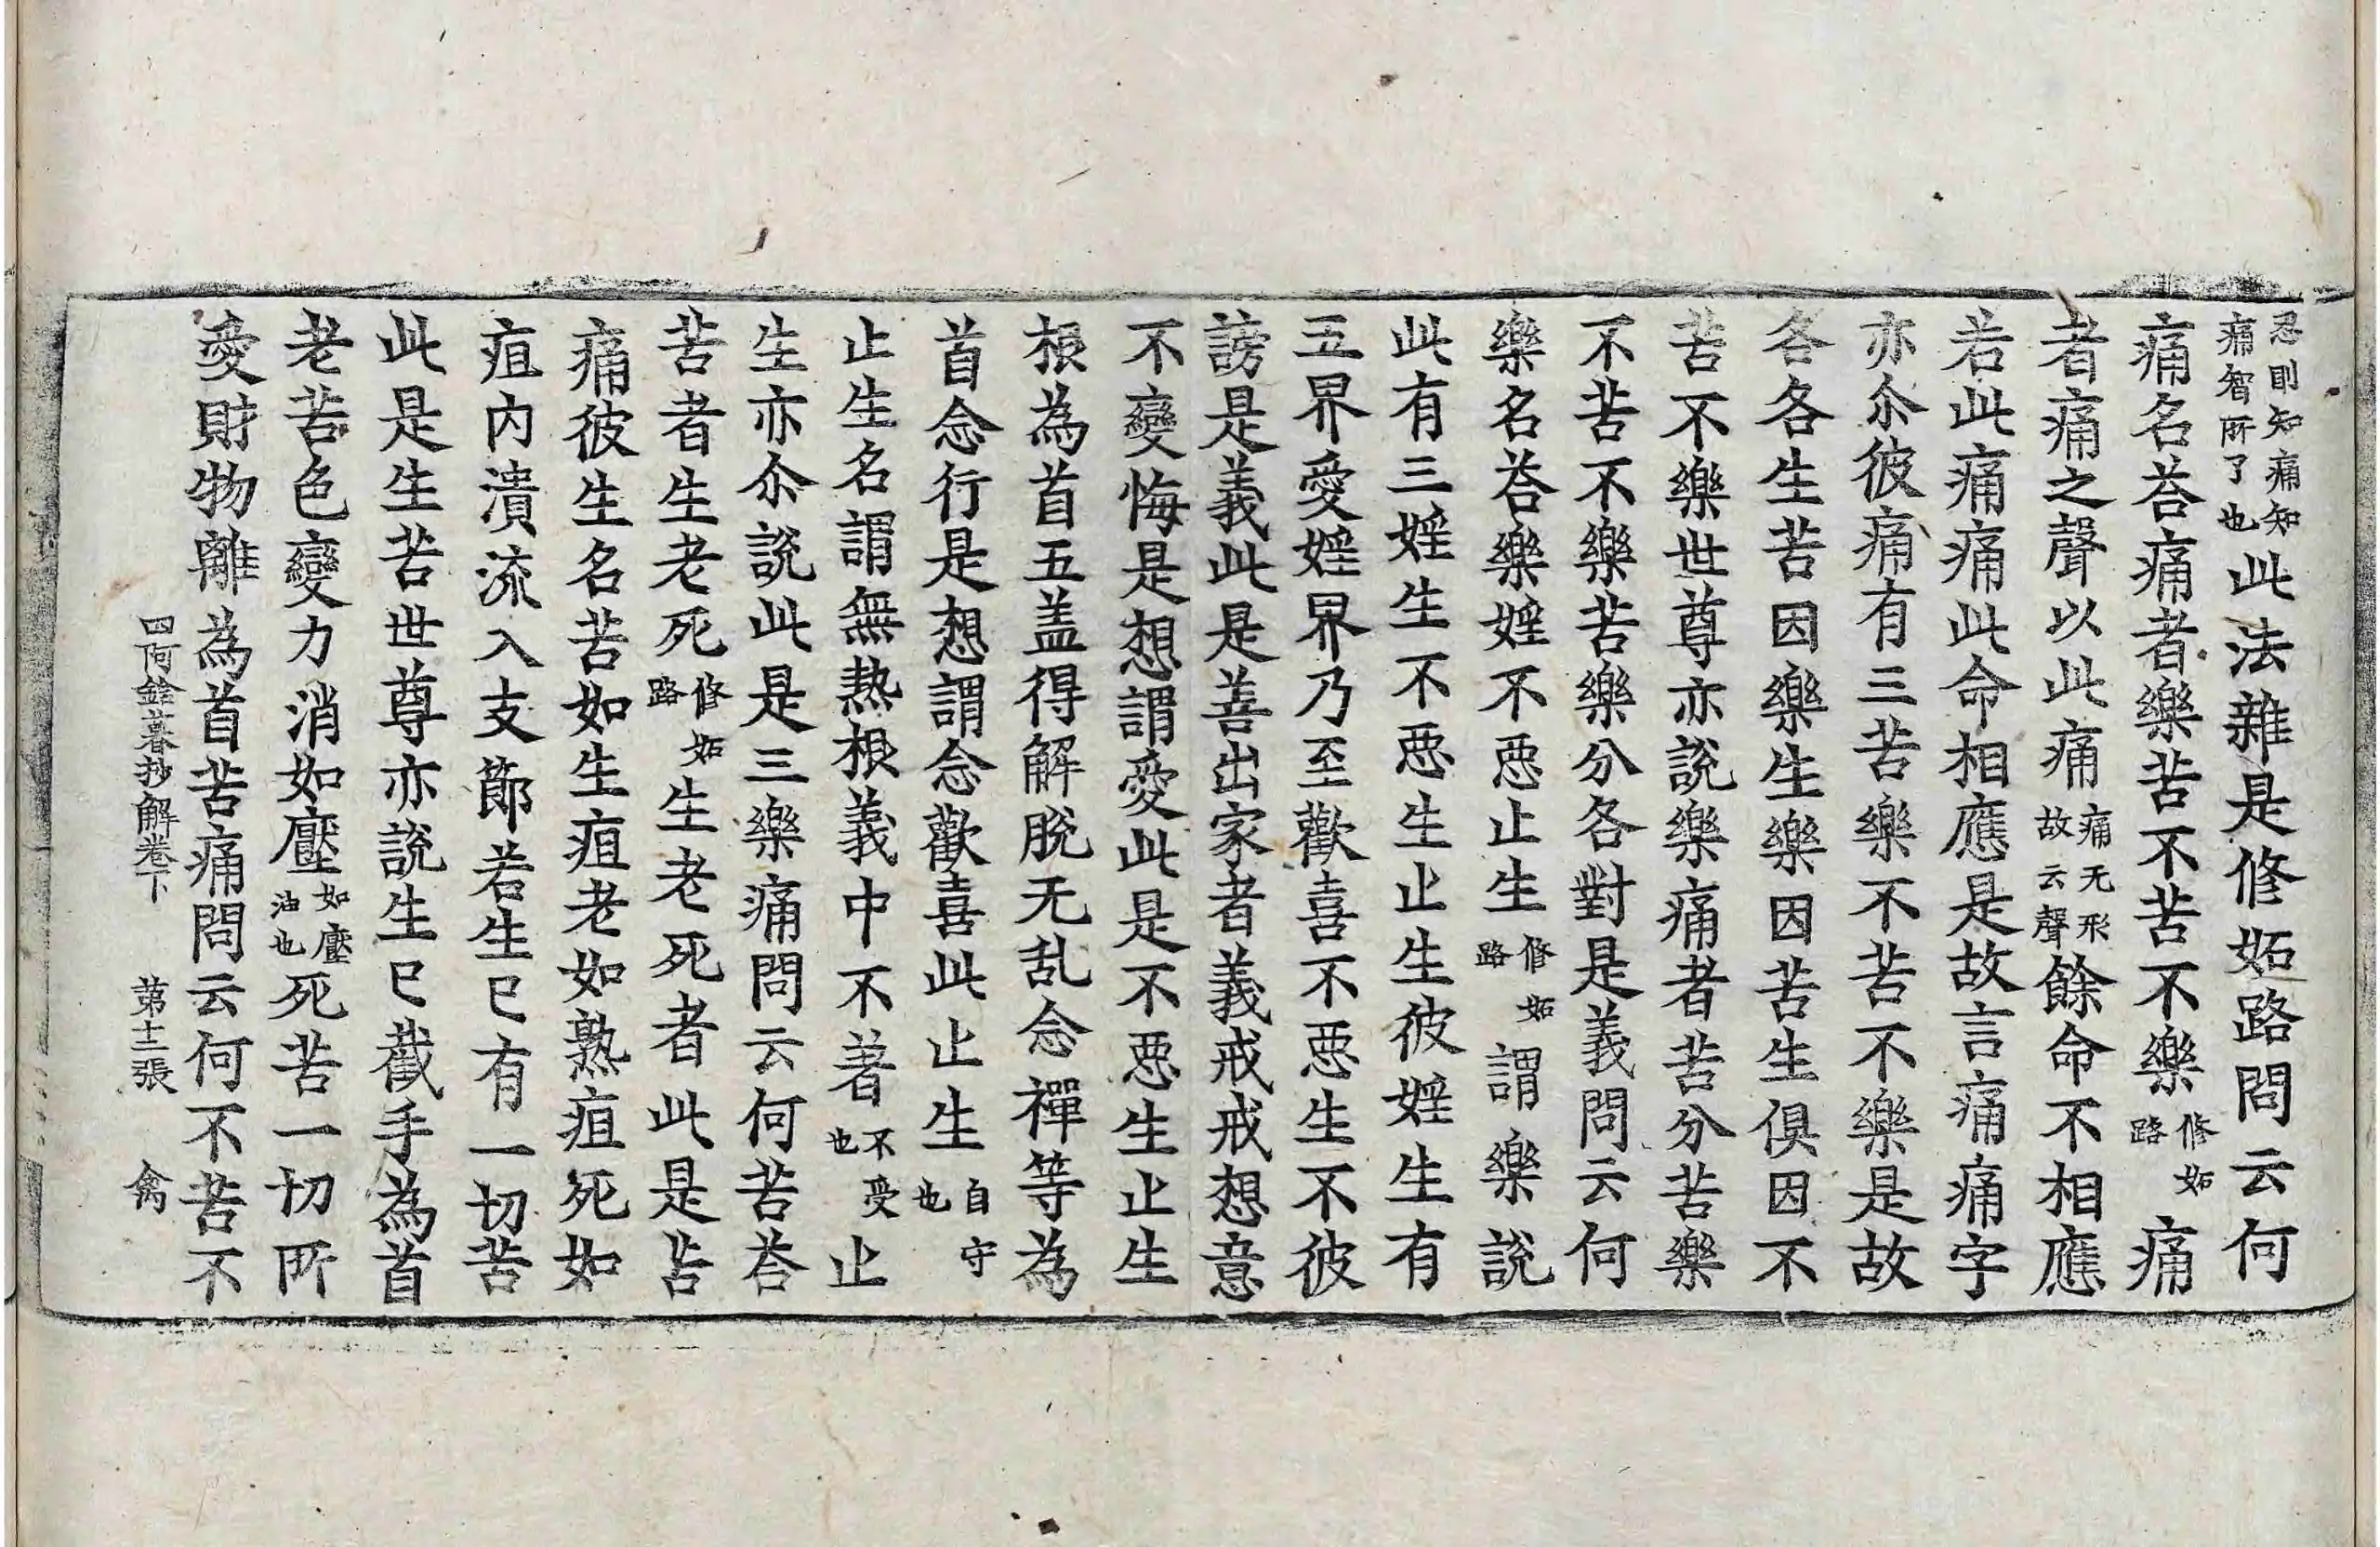 忍則知痛知痛智所了也此法雜是修妬路問云何
痛名荅痛者樂苦不苦不樂修妬路痛
者痛之聲以此痛痛无形故云聲餘命不相應
若此痛痛此命相應是故言痛痛字
亦尒彼痛有三苦樂不苦不樂是故
各各生苦因樂生樂因苦生俱因不
苦不樂世尊亦說樂痛者苦分苦樂
不苦不樂苦樂分各對是義問云何
樂名荅樂婬不惡止生修妬路謂樂說
此有三婬生不惡生止生彼婬生有
五界愛婬界乃至歡喜不惡生不彼
謗是義此是善出家者義戒戒想意
不變悔是想謂愛此是不惡生止生
根為首五盖得解脫无乱念禪等為
首念行是想謂念歡喜此止生自守也
止生名謂無熱根義中不著不受也止
生亦尒說此是三樂痛問云何苦荅
苦者生老死修妬路生老死者此是苦
痛彼生名苦如生疽老如熟疽死如
疽內潰流入支節若生已有一切苦
此是生苦世尊亦說生已截手為首
老苦色變力消如壓如壓油也死苦一切所
愛財物離為首苦痛問云何不苦不
四阿鋡暮抄解卷下 第十二張 禽